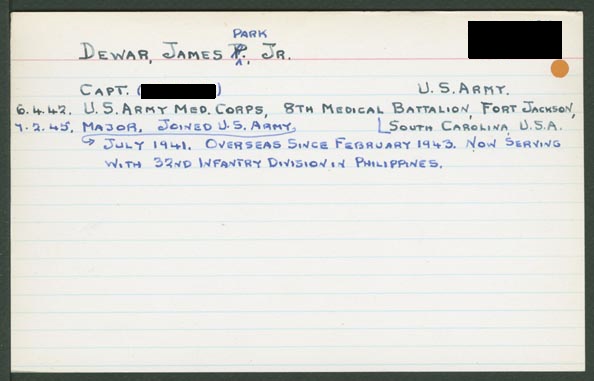 PARK
DEWAR, JAMES P., JR.
CAPT. ( ) U.S. ARMY.
6.4.42. U.S. ARMY MED. CORPS, 8TH MEDICAL BATTALION, FORT JACKSON,
7.2.45. MAJOR. JOINED U.S. ARMY, SOUTH CAROLINA, U.S.A.
JULY 1941. OVERSEAS SINCE FEBRUARY 1943. NOW SERVING
WITH 32ND INFANTRY DIVISION IN PHILIPPINES.